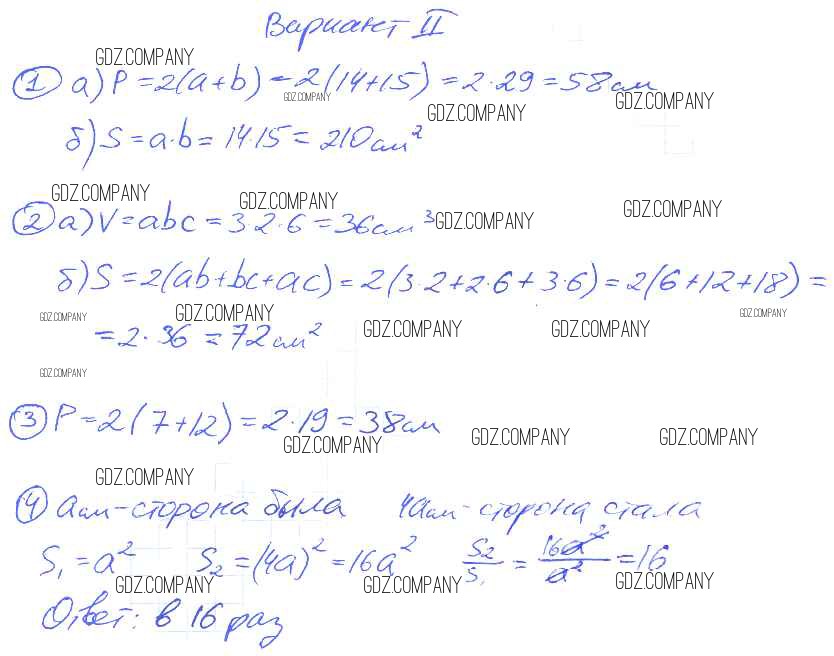 Вариант II
GDZ.COMPANY
① а) P = 2(a+b) = 2(14+15) = 2·29 = 58 см
GDZ.COMPANY GDZ.COMPANY GDZ.COMPANY
б) S = a·b = 14·15 = 210 см²
GDZ.COMPANY GDZ.COMPANY GDZ.COMPANY
② а) V = abc = 3·2·6 = 36 см³ GDZ.COMPANY
б) S = 2(ab+bc+ac) = 2(3·2+2·6+3·6) = 2(6+12+18) =
GDZ.COMPANY GDZ.COMPANY GDZ.COMPANY GDZ.COMPANY GDZ.COMPANY
= 2·36 = 72 см²
GDZ.COMPANY
③ P = 2(7+12) = 2·19 = 38 см
GDZ.COMPANY GDZ.COMPANY GDZ.COMPANY
GDZ.COMPANY
④ a см - сторона была 4a см - сторона стала
S₁ = a² S₂ = (4a)² = 16a² S₂/S₁ = 16a²/a² = 16
GDZ.COMPANY GDZ.COMPANY GDZ.COMPANY
Ответ: в 16 раз